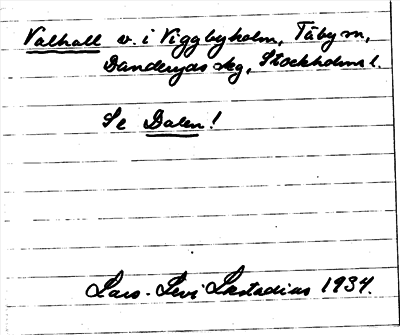 Valhall v. i Viggbyholm, Täby sn,
Danderyds skg, Stockholms l.
Se Dalen!
Lars-Levi Læstadius 1934.